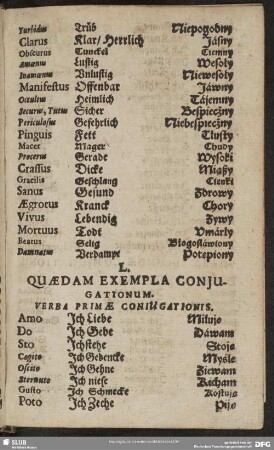 Turbidus Trüb Niepogodny
Clarus Klar/ Herrlich Jásny
Obscurus Tunckel Ciemny
Amœnus Lustig Wesoły
Inamœnus Unlustig Niewesoły
Manifestus Offenbar Jáwny
Occultus Heimlich Tájemny
Securus, Tutus Sicher Bespieczny
Periculosus Gefehrlich Niebespieczny
Pinguis Fett Tłusty
Macer Mager Chudy
Procerus Gerade Wysoki
Crassus Dicke Miąßy
Gracilis Geschlang Cienki
Sanus Gesund Zdrowy
Ægrotus Kranck Chory
Vivus Lebendig Zywy
Mortuus Todt Vmárły
Beatus Selig Błogosłáwiony
Damnatus Verdampt Potępiony
L.
QUÆDAM EXEMPLA CONJU-
GATIONUM.
VERBA PRIMÆ CONJUGATIONIS.
Amo Jch Liebe Miłuję
Do Jch Gebe Dáwam
Sto Jchstehe Stoję
Cogito Jch Gedencke Myślę
Oscito Jch Gehne Ziewam
Sternuto Jch niese Kicham
Gusto Jch Schmecke Kosztuję
Poto Jch Zeche Piję
SLUB
DFG